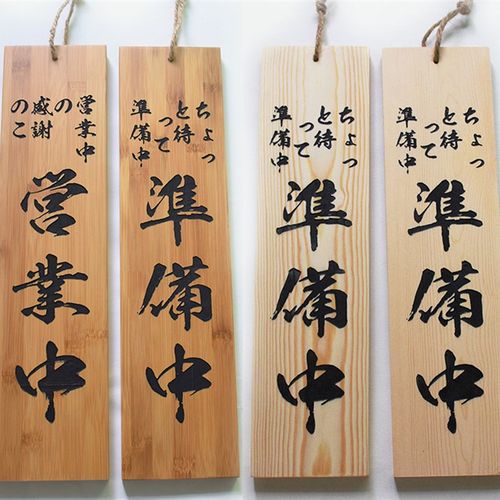 営業中
の
感謝
のこ
営業中
ちょっ
と待
って
準備中
準備中
ちょっ
と待
って
準備中
準備中
ちょっ
と待
って
準備中
準備中